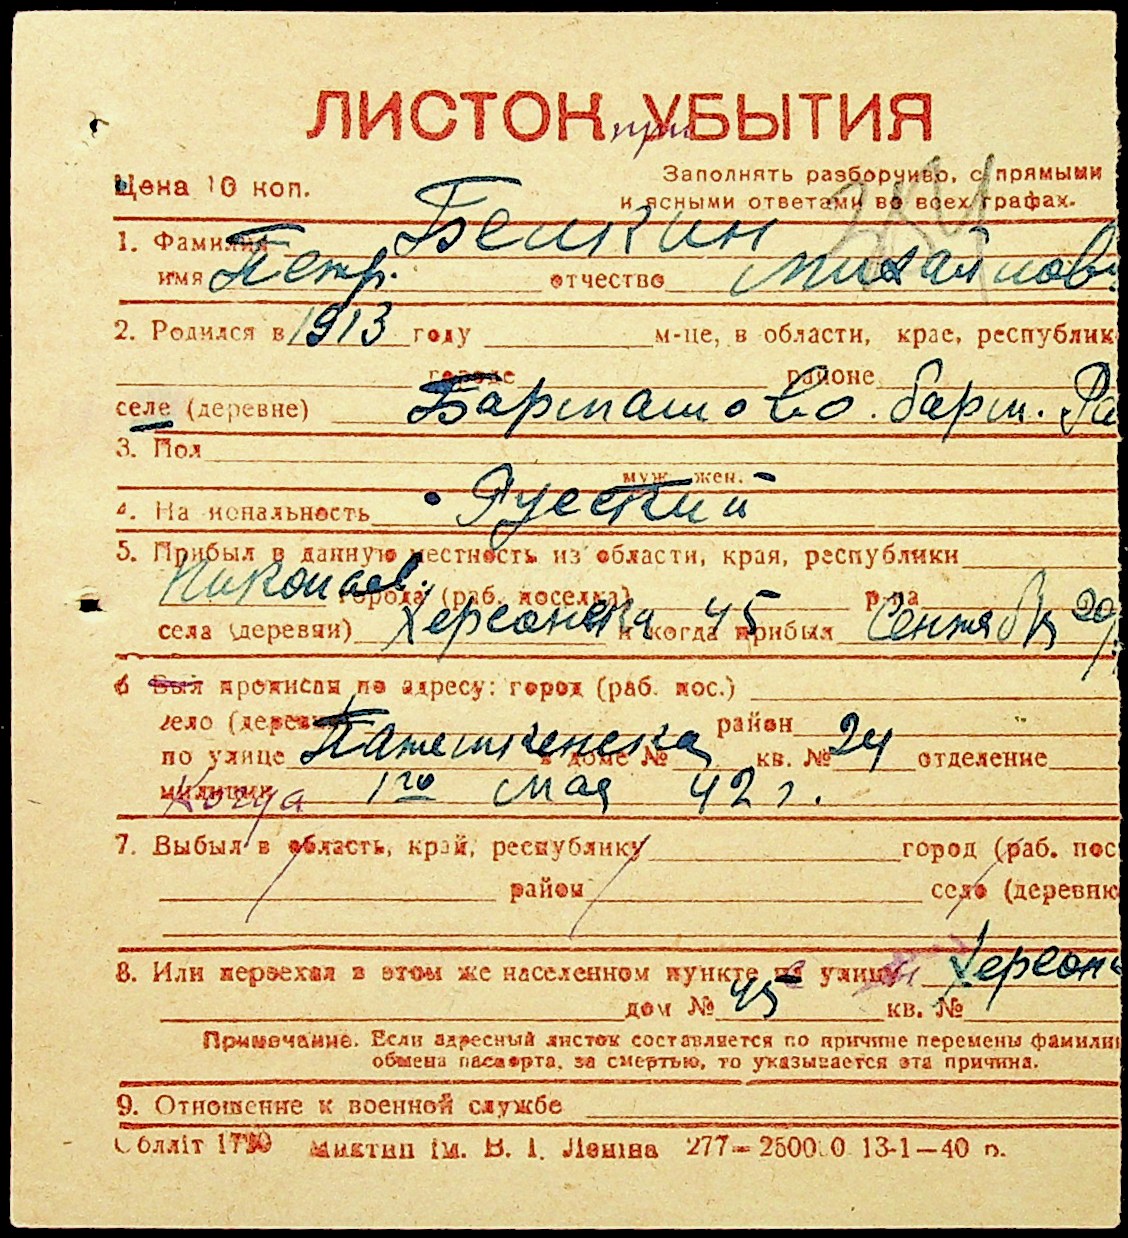 ЛИСТОК при УБЫТИЯ
Цена 10 коп.
Заполнять разборчиво, с прямыми
и ясными ответами во всех графах.
384
1. Фамилия Белкин
имя Петр. отчество Михайлов
2. Родился в 1913 году м-це, в области, крае, республик
городе районе
селе (деревне) Барташово. барт. Ра
3. Пол
муж. жен.
4. Национальность Русский
5. Прибыл в данную местность из области, края, республики
Николаев. города (раб. поселка) р-на
села (деревни) Херсонска 45 и когда прибыл Сентябь 20
6 Был прописан по адресу: город (раб. пос.)
село (деревня) район
по улице в доме № кв. № 24 отделение
милиции Когда 1го Мая 42 г.
7. Выбыл в область, край, республику город (раб. пос
район село (деревню
8. Или переехал в этом же населенном пункте на улицу Херсон
дом № 45 кв. №
Примечание. Если адресный листок составляется по причине перемены фамилии
обмена паспорта, за смертью, то указывается эта причина.
9. Отношение к военной службе
Облліт 1790 Миктип ім. В. І. Леніна 277—250000 13-1—40 р.